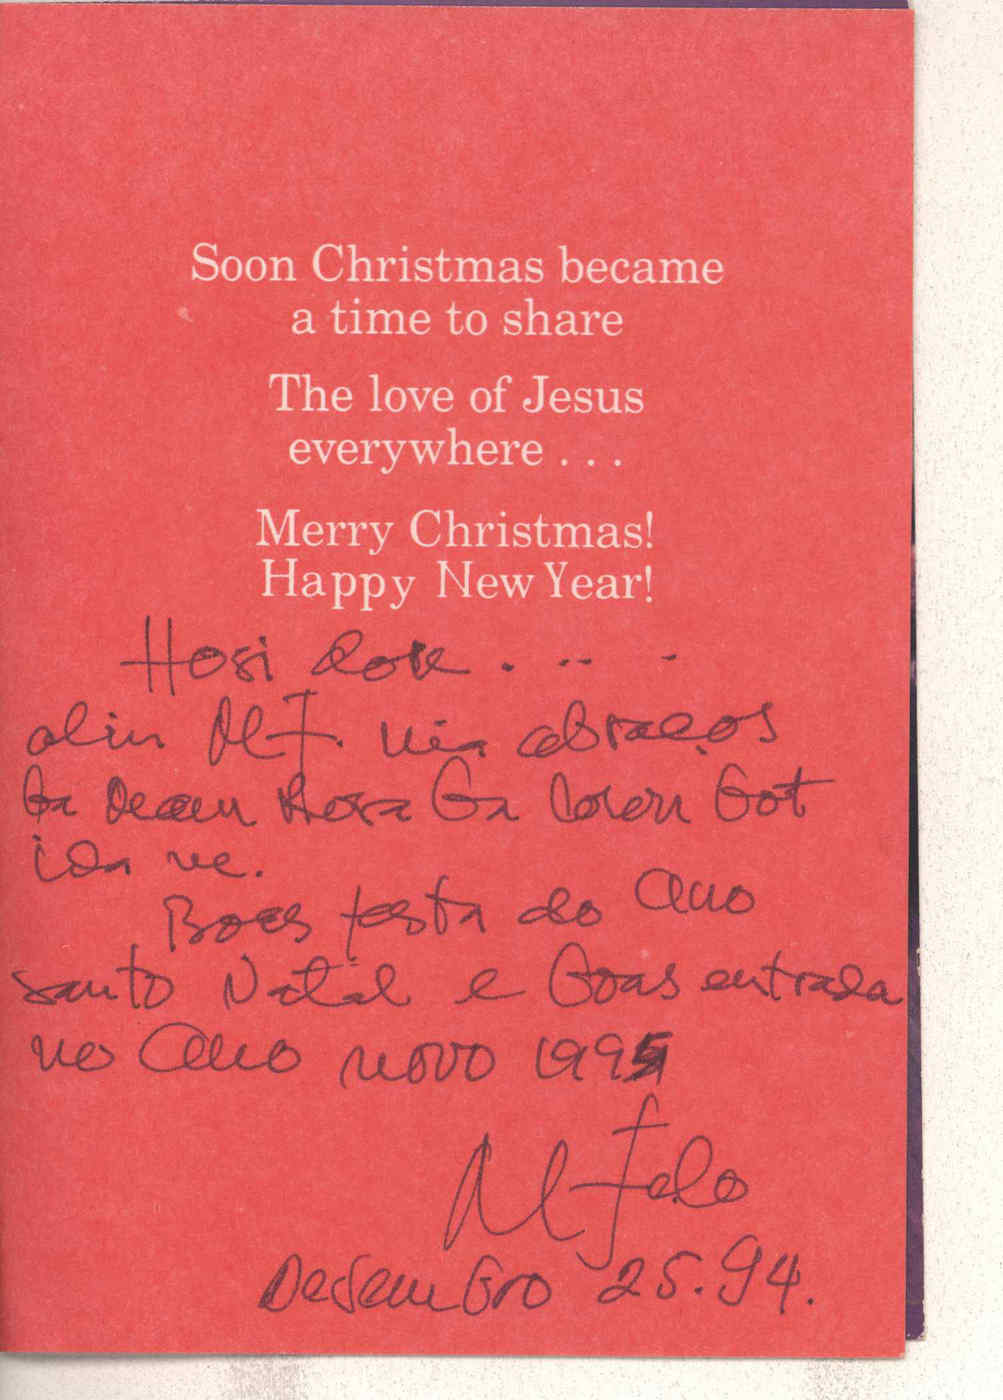 Soon Christmas became
a time to share
The love of Jesus
everywhere . . .
Merry Christmas!
Happy New Year!
Hosi dok . . . .
alin M.F. nia abraços
ba Rosa ba
ida ne.
Boas festa do Ano
santo Natal e boas entrada
no Ano novo 1995
Desembro 25.94.